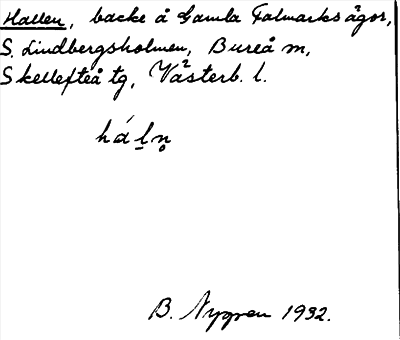 Hallen, backe å Gamla Falmarks ägor,
S. Lindbergsholmen, Bureå sn,
Skellefteå tg, Västerb. l.
hál̠n̥
B. Nygren 1932.